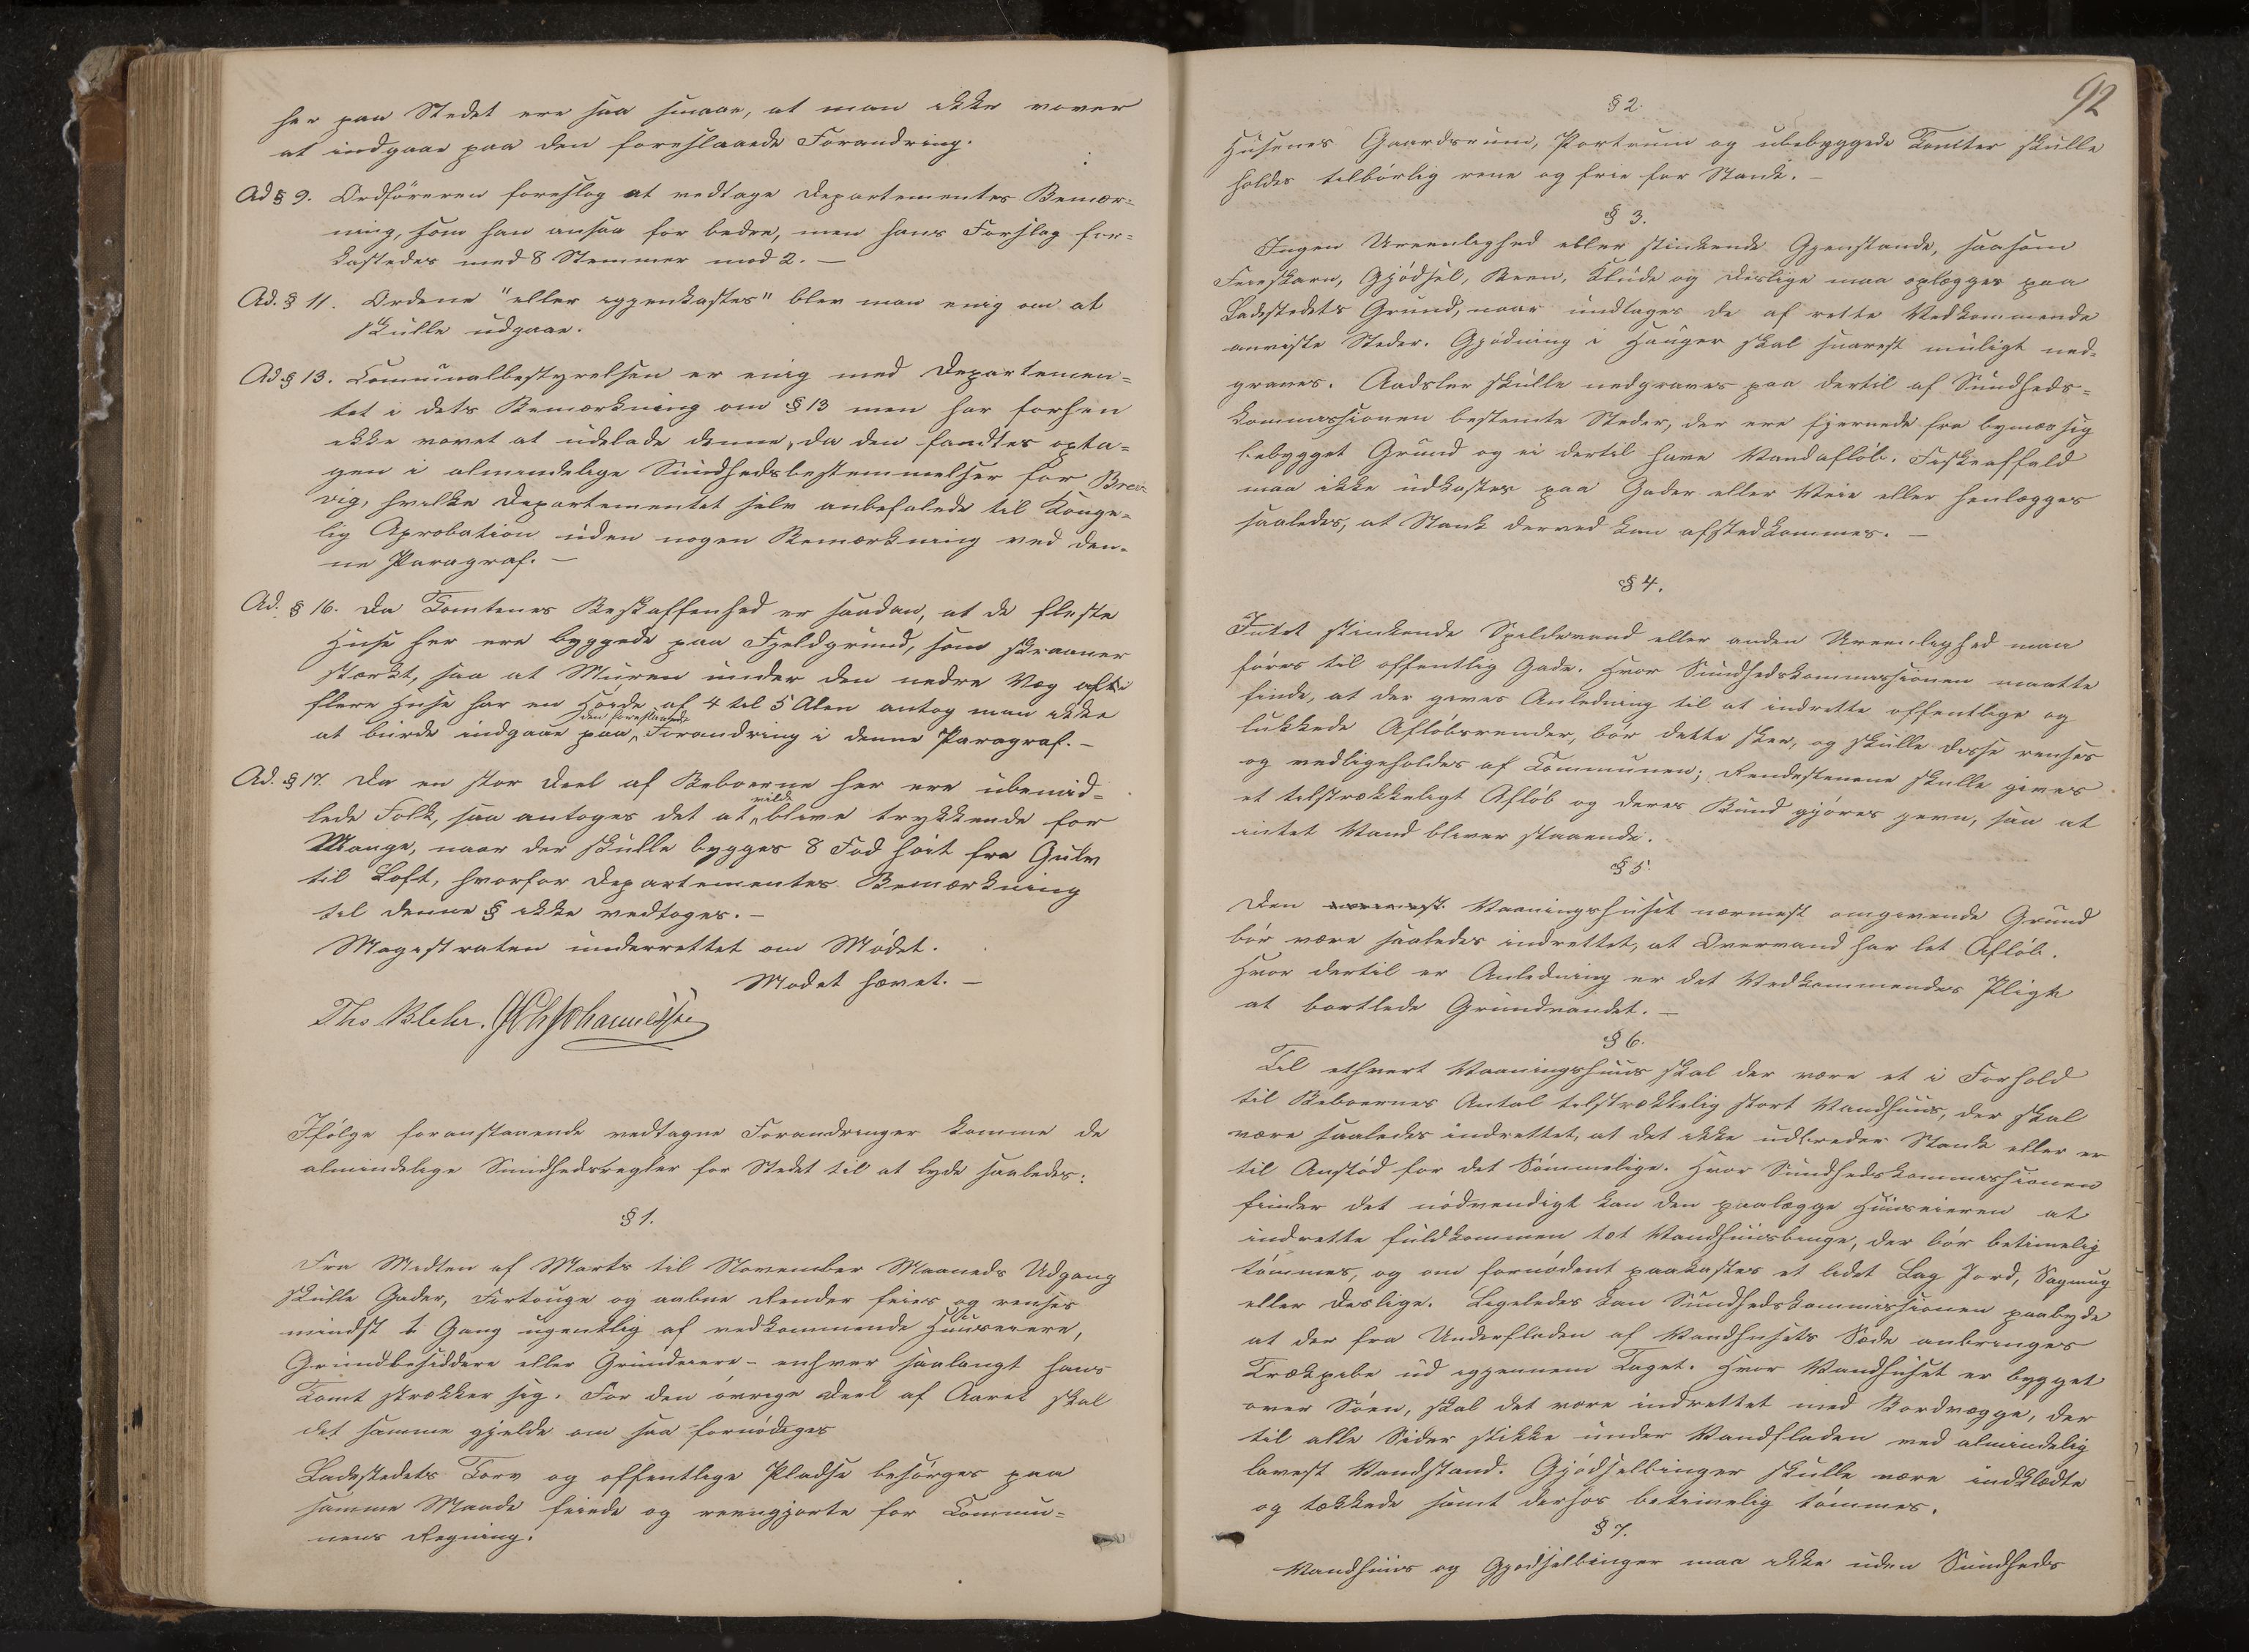 her paa Stedet ere saa smaae, at man ikke vover
at indgaae paa den foreslaaede Forandring.
Ad § 9. Ordføreren foreslog at vedtage Departementes Bemær-
ning, som han ansaa for bedre, men hans Forslag for-
kastedes med 8 Stemmer mod 2. —
Ad. § 11. Ordene "eller igjenkastes" blev man enig om at
skulle udgaae.
Ad § 13. Communalbestyrelsen er enig med Departemen-
tet i dets Bemærkning om § 13 men har forhen
ikke vovet at udelade denne, da den fandtes opta-
gen i almindelige Sundhedsbestemmelser for Bre-
vig, hvilke Departementet selv anbefalede til Konge-
lig Aprobation uden nogen Bemærkning ved den-
ne Paragraf. —
Ad. § 16. Da Tomtenes Beskaffenhed er saadan, at de fleste
Huse her ere byggede paa Fjeldgrund, som skraaner
stærkt, saa at Muren under den nedre Væg af
flere Huse har en Høide af 4 til 5 Alen antog man ikke
den foreslaaede
at burde indgaae paa Forandring i denne Paragraf. —
Ad. § 17. Da en stor Deel af Beboerne her ere ubemid-
vilde
lede Folk, saa antoges det at blive trykkende for
Mange, naar der skulle bygges 8 Fod høit fra Gulv
til Loft, hvorfor Departementes Bemærkning
til denne § ikke vedtoges. —
Magistraten underrettet om Mødet.
Mødet hævet. —
Ths Blehr. Johannessen
Ifølge foranstaaende vedtagne Forandringer komme de
almindelige Sundhedsregler for Stedet til at lyde saaledes:
§ 1.
Fra Midten af Marts til November Maaneds Udgang
skulle Gader, Fortouge og aabne Render feies og renses
mindst 1 Gang ugentlig af vedkommende Huuseiere,
Grundbesiddere eller Grundeiere - enhver saalangt hans
Tomt strækker sig. For den øvrige Deel af Aaret skal
det samme gjelde om saa fornødiges
Ladestedets Torv og offentlige Pladse besørges paa
samme Maade feiede og reengjorte for Commu-
nens Regning.
92
§ 2.
Husenes Gaardsrum, Portrum og ubebyggede Tomter skulle
holdes tilbørlig rene og frie for Stank. —
§ 3.
Ingen Ureenlighed eller stinkende Gjenstande, saasom
Feieskarn, Gjødsel, Been, Klude og deslige maa oplægges paa
Ladestedets Grund, naar undtages de af rette Vedkommende
anviste Steder. Gjødning i Hauger skal snarest muligt ned-
graves. Aadsler skulle nedgraves paa dertil af Sundheds-
kommissionen bestemte Steder, der ere fjernede fra bymæssig
bebygget Grund og ei dertil have Vandafløb. Fiskeaffald
maa ikke udkastes paa Gader eller Veie eller henlægges
saaledes, at Stank derved kan afstedkommes. —
§ 4.
Intet stinkende Spildevand eller anden Ureenlighed maa
føres til offentlig Gade. Hvor Sundhedskommissionen maatte
finde, at der gives Anledning til at indrette offentlige og
lukkede Afløbsrender, bør dette skee, og skulle disse renses
og vedligeholdes af Communen; Rendestenene skulle gives
et tilstrækkeligt Afløb og deres Bund gjøres jevn, saa at
intet Vand bliver staaende.
§ 5.
Den nærmest Vaaningshuset nærmest omgivende Grund
bør være saaledes indrettet, at Overvand har let Afløb.
Hvor dertil er Anledning er det Vedkommendes Pligt
at bortlede Grundvandet. —
§ 6.
Til ethvert Vaaningshuus skal der være et i Forhold
til Beboernes Antal tilstrækkelig stort Vandhuus, der skal
være saaledes indrettet, at det ikke udbreder Stank eller er
til Anstød for det Sømmelige. Hvor Sundhedskommissionen
finder det nødvendigt kan den paalægge Huuseieren at
indrette fuldkommen tæt Vandhuusbinge, der bør betimelig
tømmes, og om fornødent paakastes et lidet Lag Jord, Sagmug
eller deslige. Ligeledes kan Sundhedskommissionen paabyde
at der fra Underfladen af Vandhusets Sæde anbringes
Trækpibe ud igjennem Taget. Hvor Vandhuset er bygget
over Søen, skal det være indrettet med Bordvægge, der
til alle Sider stikke under Vandfladen ved almindelig
lavest Vandstand. Gjødselbinger skulle være indklædte
og tækkede samt derhos betimelig tømmes.
§ 7.
Vandhuus og Gjødselbinger maa ikke uden Sundheds